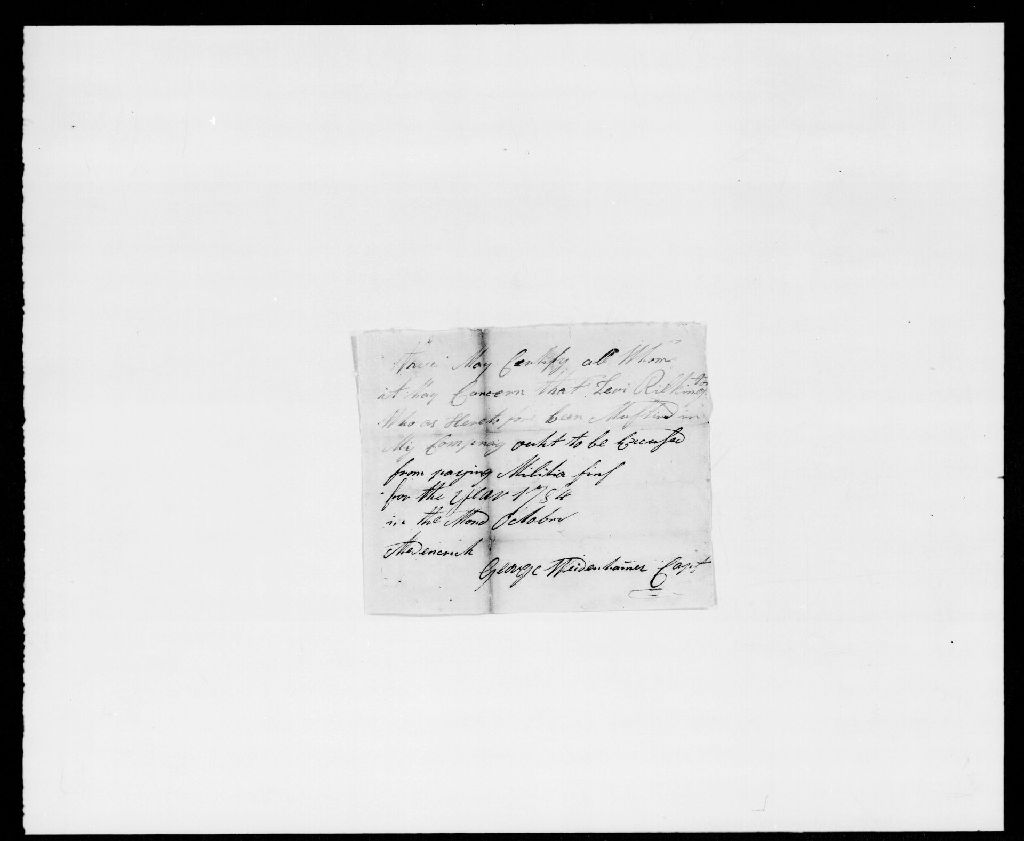 May Certify all Whom
it May Concern that Levi
Who as been Mustred in
My Company ouht to be Excused
from paying Militia fins
for the year 17
in the Mond October
George Weidenhamer Capt